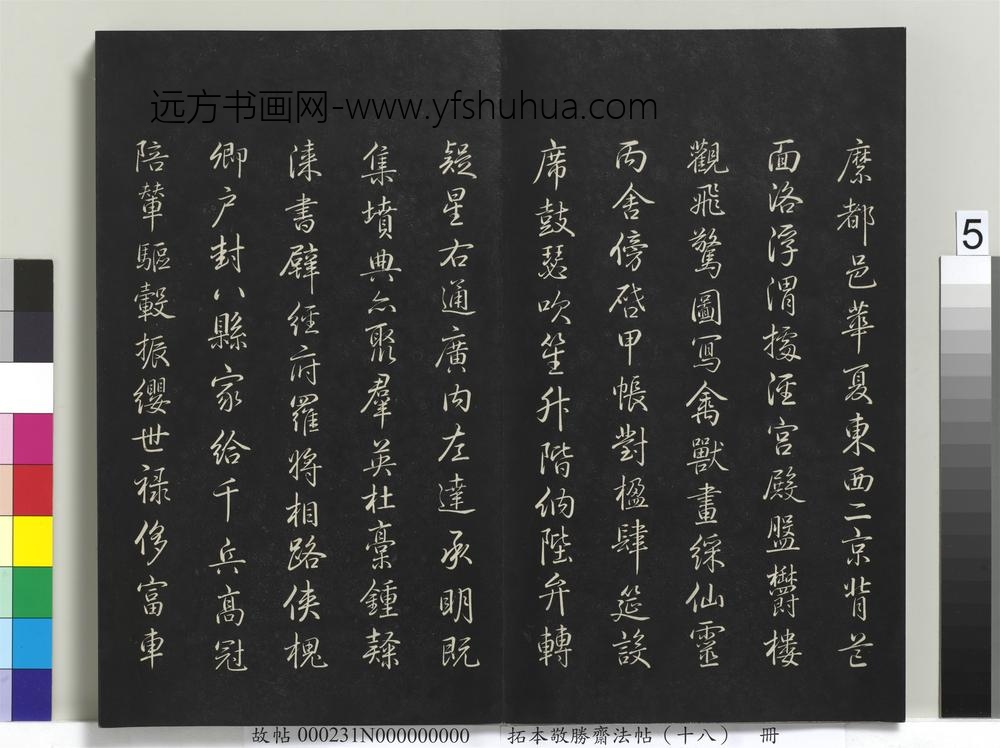 远方书画网-www.yfshuhua.com
縻都邑華夏東西二京背芒
面洛浮渭據涇宮殿盤鬱樓
觀飛驚圖寫禽獸畫綵仙靈
丙舍傍啓甲帳對楹肆筵設
席鼓瑟吹笙升階納陛弁轉
疑星右通廣内左達承明既
集墳典亦聚羣英杜稾鍾隸
漆書壁經府羅將相路俠槐
卿户封八縣家給千兵高冠
陪輦驅轂振纓世禄侈富車
5
故帖 000231N000000000 拓本敬勝齋法帖（十八） 冊